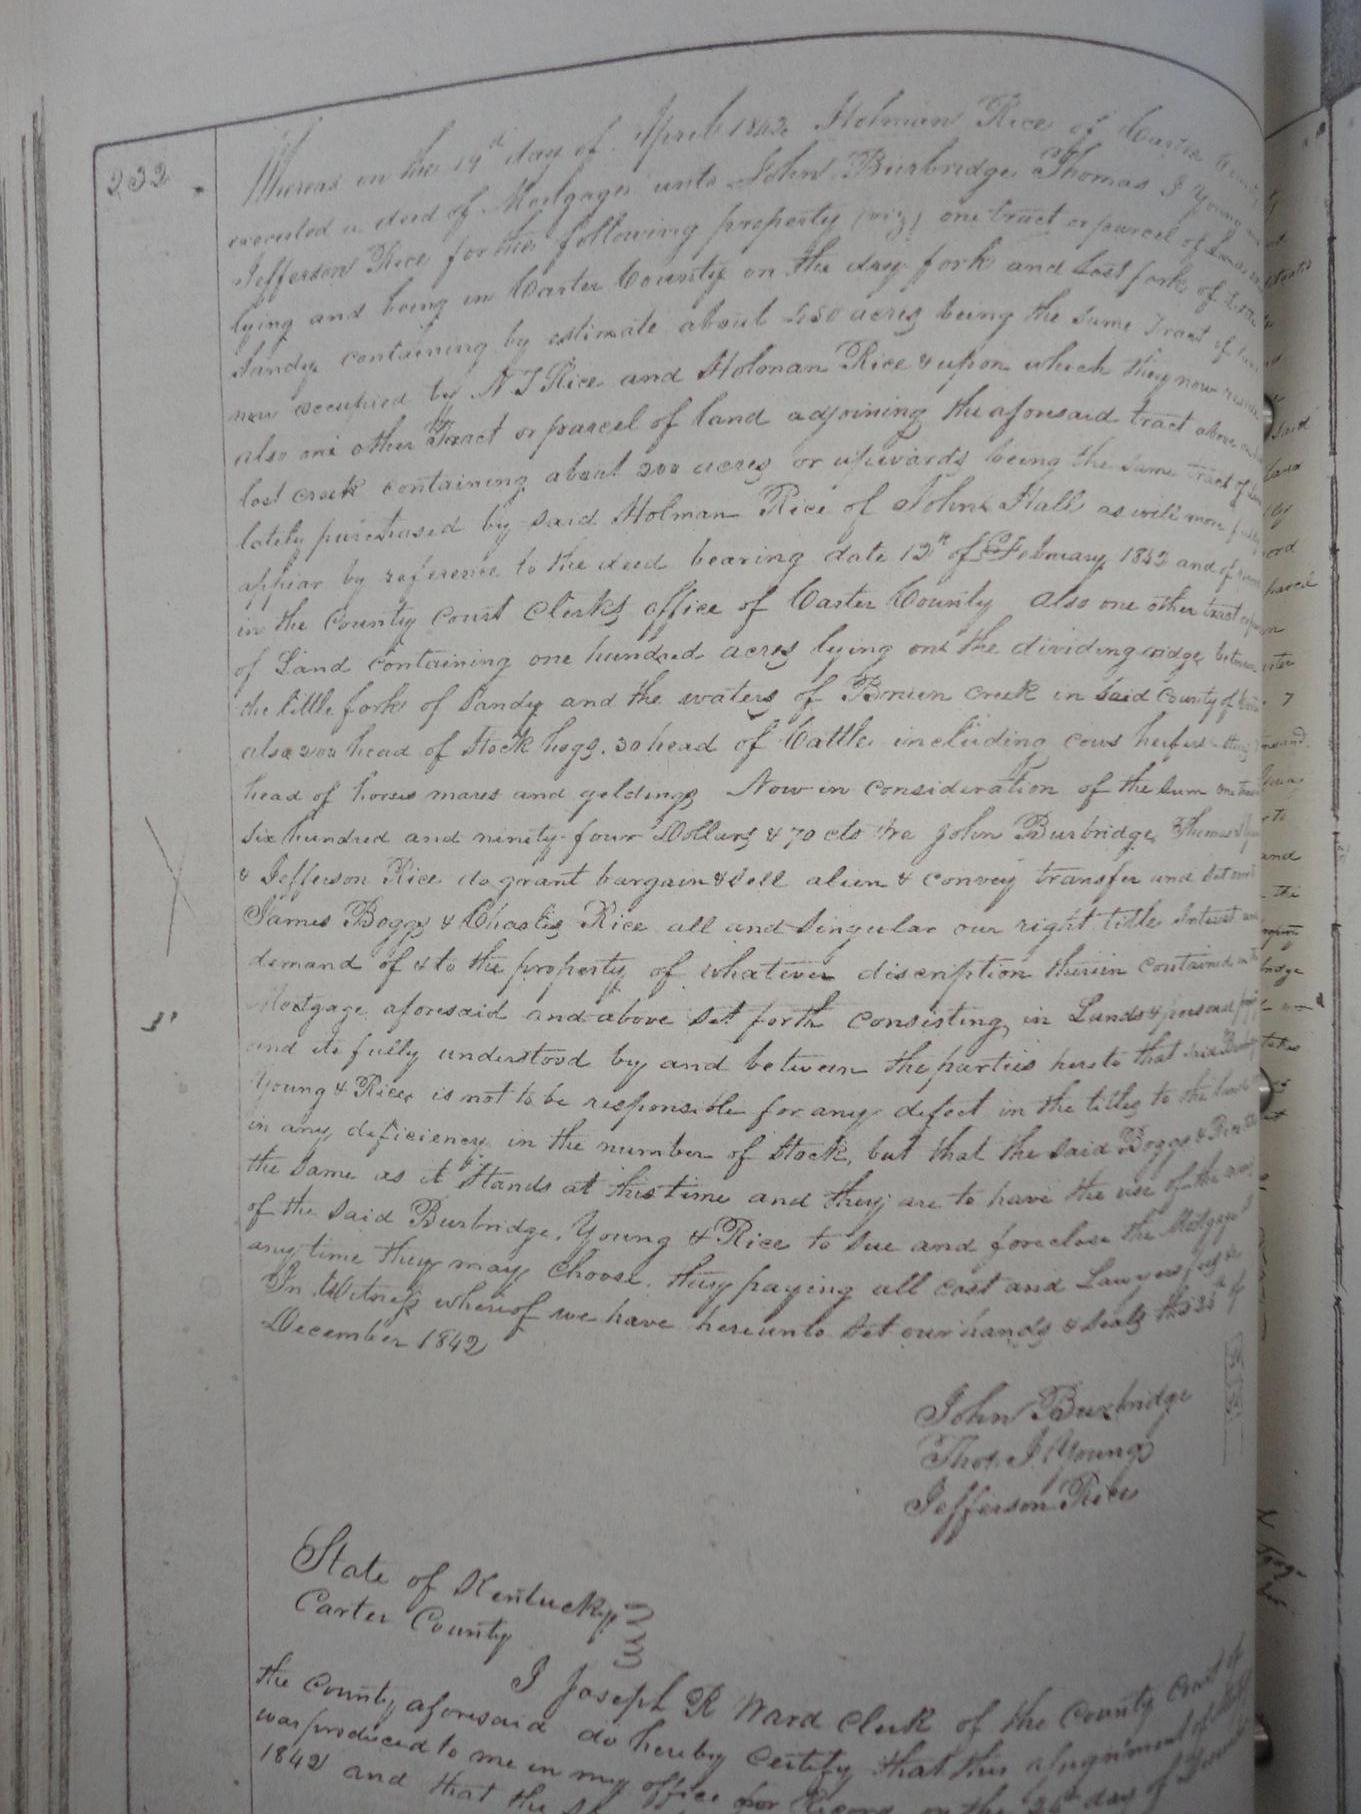 232
Whereas on the 19th day of April 1842 Holman Rice of Carter County
executed a deed of Mortgage unto John Burbridge Thomas J Young and
Jefferson Rice for the following property (viz) one tract or parcel of Land
lying and being in Carter County on the dry fork and Lost fork of Little
Sandy containing by estimate about 250 acres being the same Tract of land
now occupied by N T Rice and Holman Rice & upon which they now reside
also one other Tract or parcel of land adjoining the aforesaid tract above
lost creek containing about 200 acres or upwards being the same tract of land
lately purchased by said Holman Rice of John Hall as will more fully
appear by reference to the deed bearing date 12th of February 1842 and of record
in the County Court Clerks office of Carter County also one other tract
of Land containing one hundred acres lying on the dividing ridge between
the little fork of Sandy and the waters of creek in said County of
also 200 head of Stock hogs. 30 head of Cattle including cows heifers
head of horses mares and geldings Now in consideration of the sum
six hundred and ninety-four Dollars & 70 cts we John Burbridge, Thomas
& Jefferson Rice do grant bargain & Sell alien & convey transfer and Set
James Boggs & Charles Rice all and Singular our right title Intrest
demand of & to the property of whatever discription therein contained
Mortgage aforesaid and above Set forth consisting in Lands & personal
and its fully understood by and between the parties hereto that said
Young & Rice is not to be responsible for any defect in the titles to the
in any deficiency in the number of Stock, but that the said Boggs &
the same as it Stands at this time and they are to have the use of the
of the said Burbridge, Young & Rice to Sue and foreclose the Mortgage
any time they may choose. they paying all cost and Lawyers
In Witness whereof we have hereunto Set our hands & Seals this
December 1842
John Burbridge
Thos. J Young
Jefferson Rice
State of Kentucky
Carter County
I Joseph R Ward Clerk of the County Court of
the County aforesaid do hereby certify that this assignment of
was produced to me in my office for Record on the 26th day of
1842 and that the